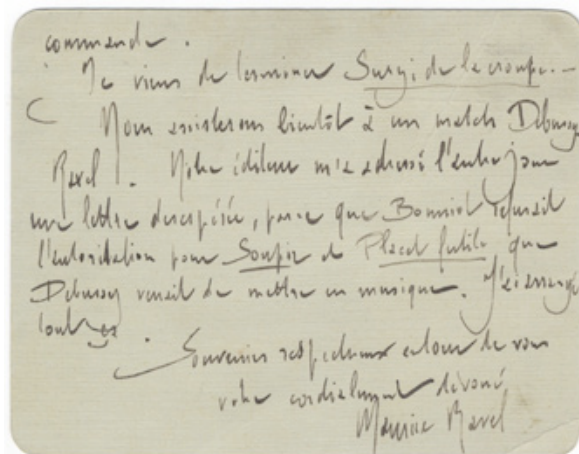 commande.
Je viens de terminer Surgi de la croupe. _
Nous assisterons bientôt à un match Debussy
Ravel. Notre éditeur m'a adressé l'autre jour
une lettre désespérée, parce que Bonniot refusait
l'autorisation pour Soupir et Placet futile que
Debussy venait de mettre en musique. J'ai arrangé
tout ça.
Souvenirs respectueux autour de vous
votre cordialement dévoué
Maurice Ravel